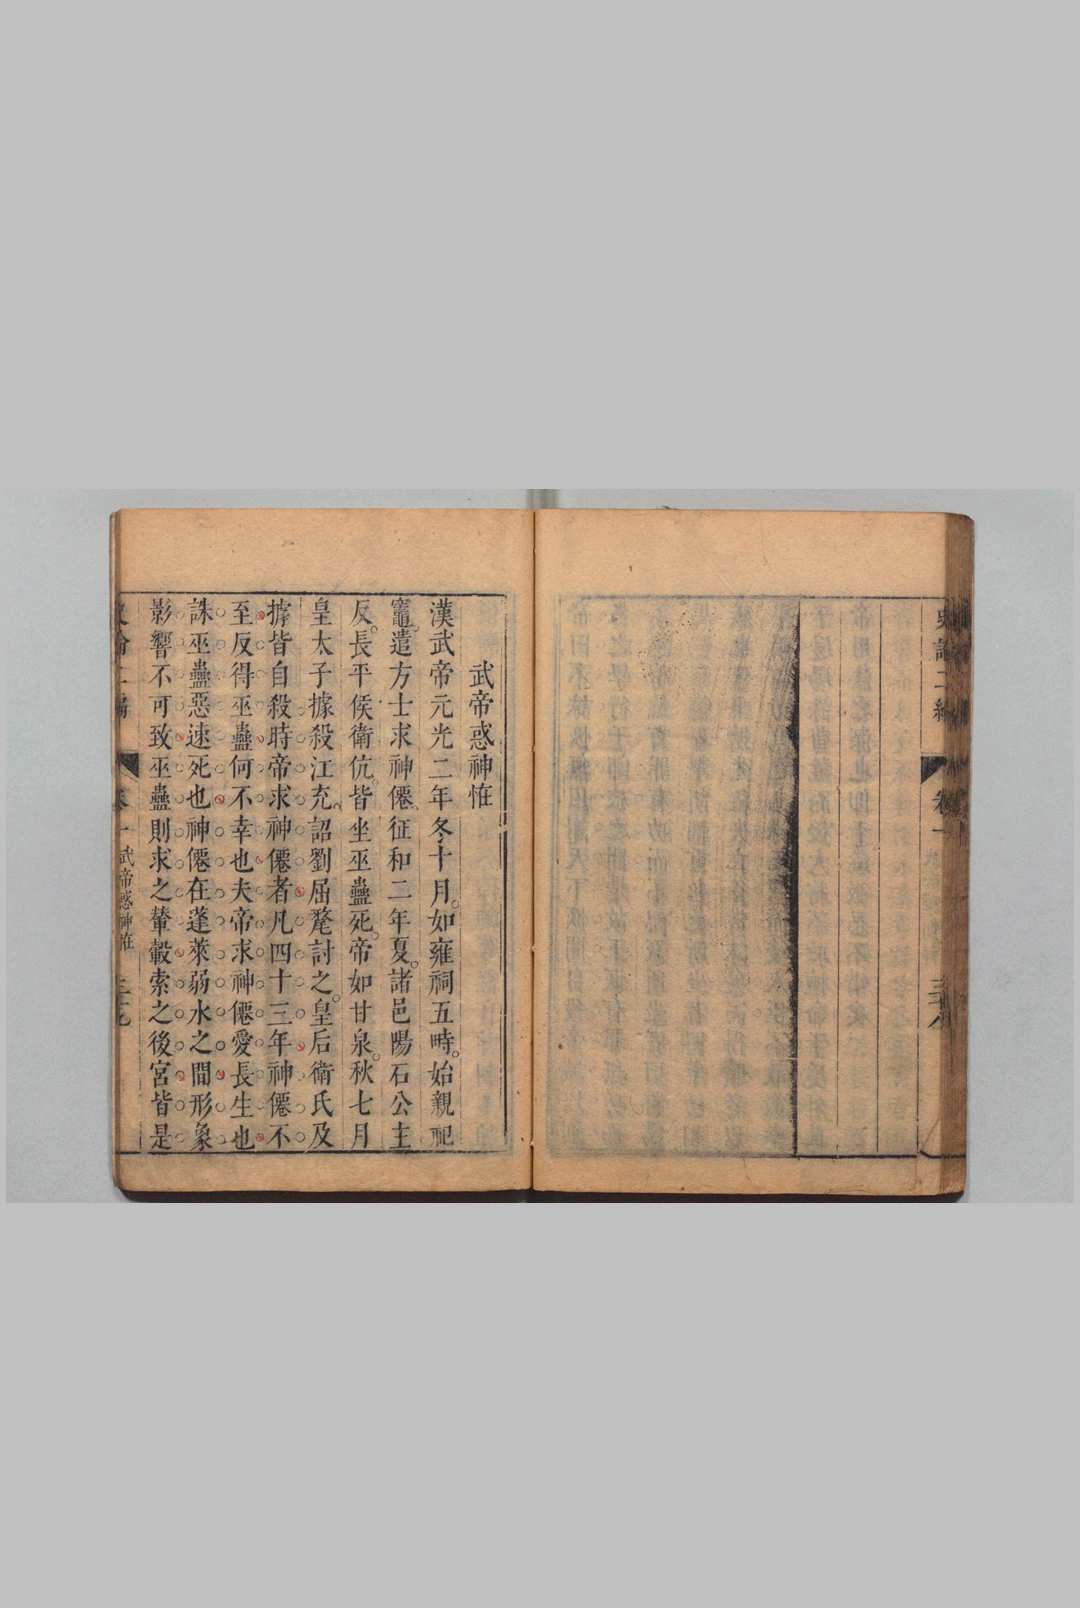 史論二編
卷一
三十八
武帝惑神恠
漢武帝元光二年冬十月。如雍祠五時。始親祀
竈。遣方士求神僊。征和二年夏。諸邑陽石公主
反。長平侯衛伉。皆坐巫蠱死。帝如甘泉。秋七月
皇太子據殺江充。詔劉屈氂討之。皇后衛氏及
據皆自殺時帝求神僊者凡四十三年神僊不
至反得巫蠱何不幸也夫帝求神僊愛長生也
誅巫蠱惡速死也神僊在蓬萊弱水之間形象
影響不可致巫蠱則求之輦轂索之後宮皆是
史論二編
卷一
武帝惑神恠
三十九